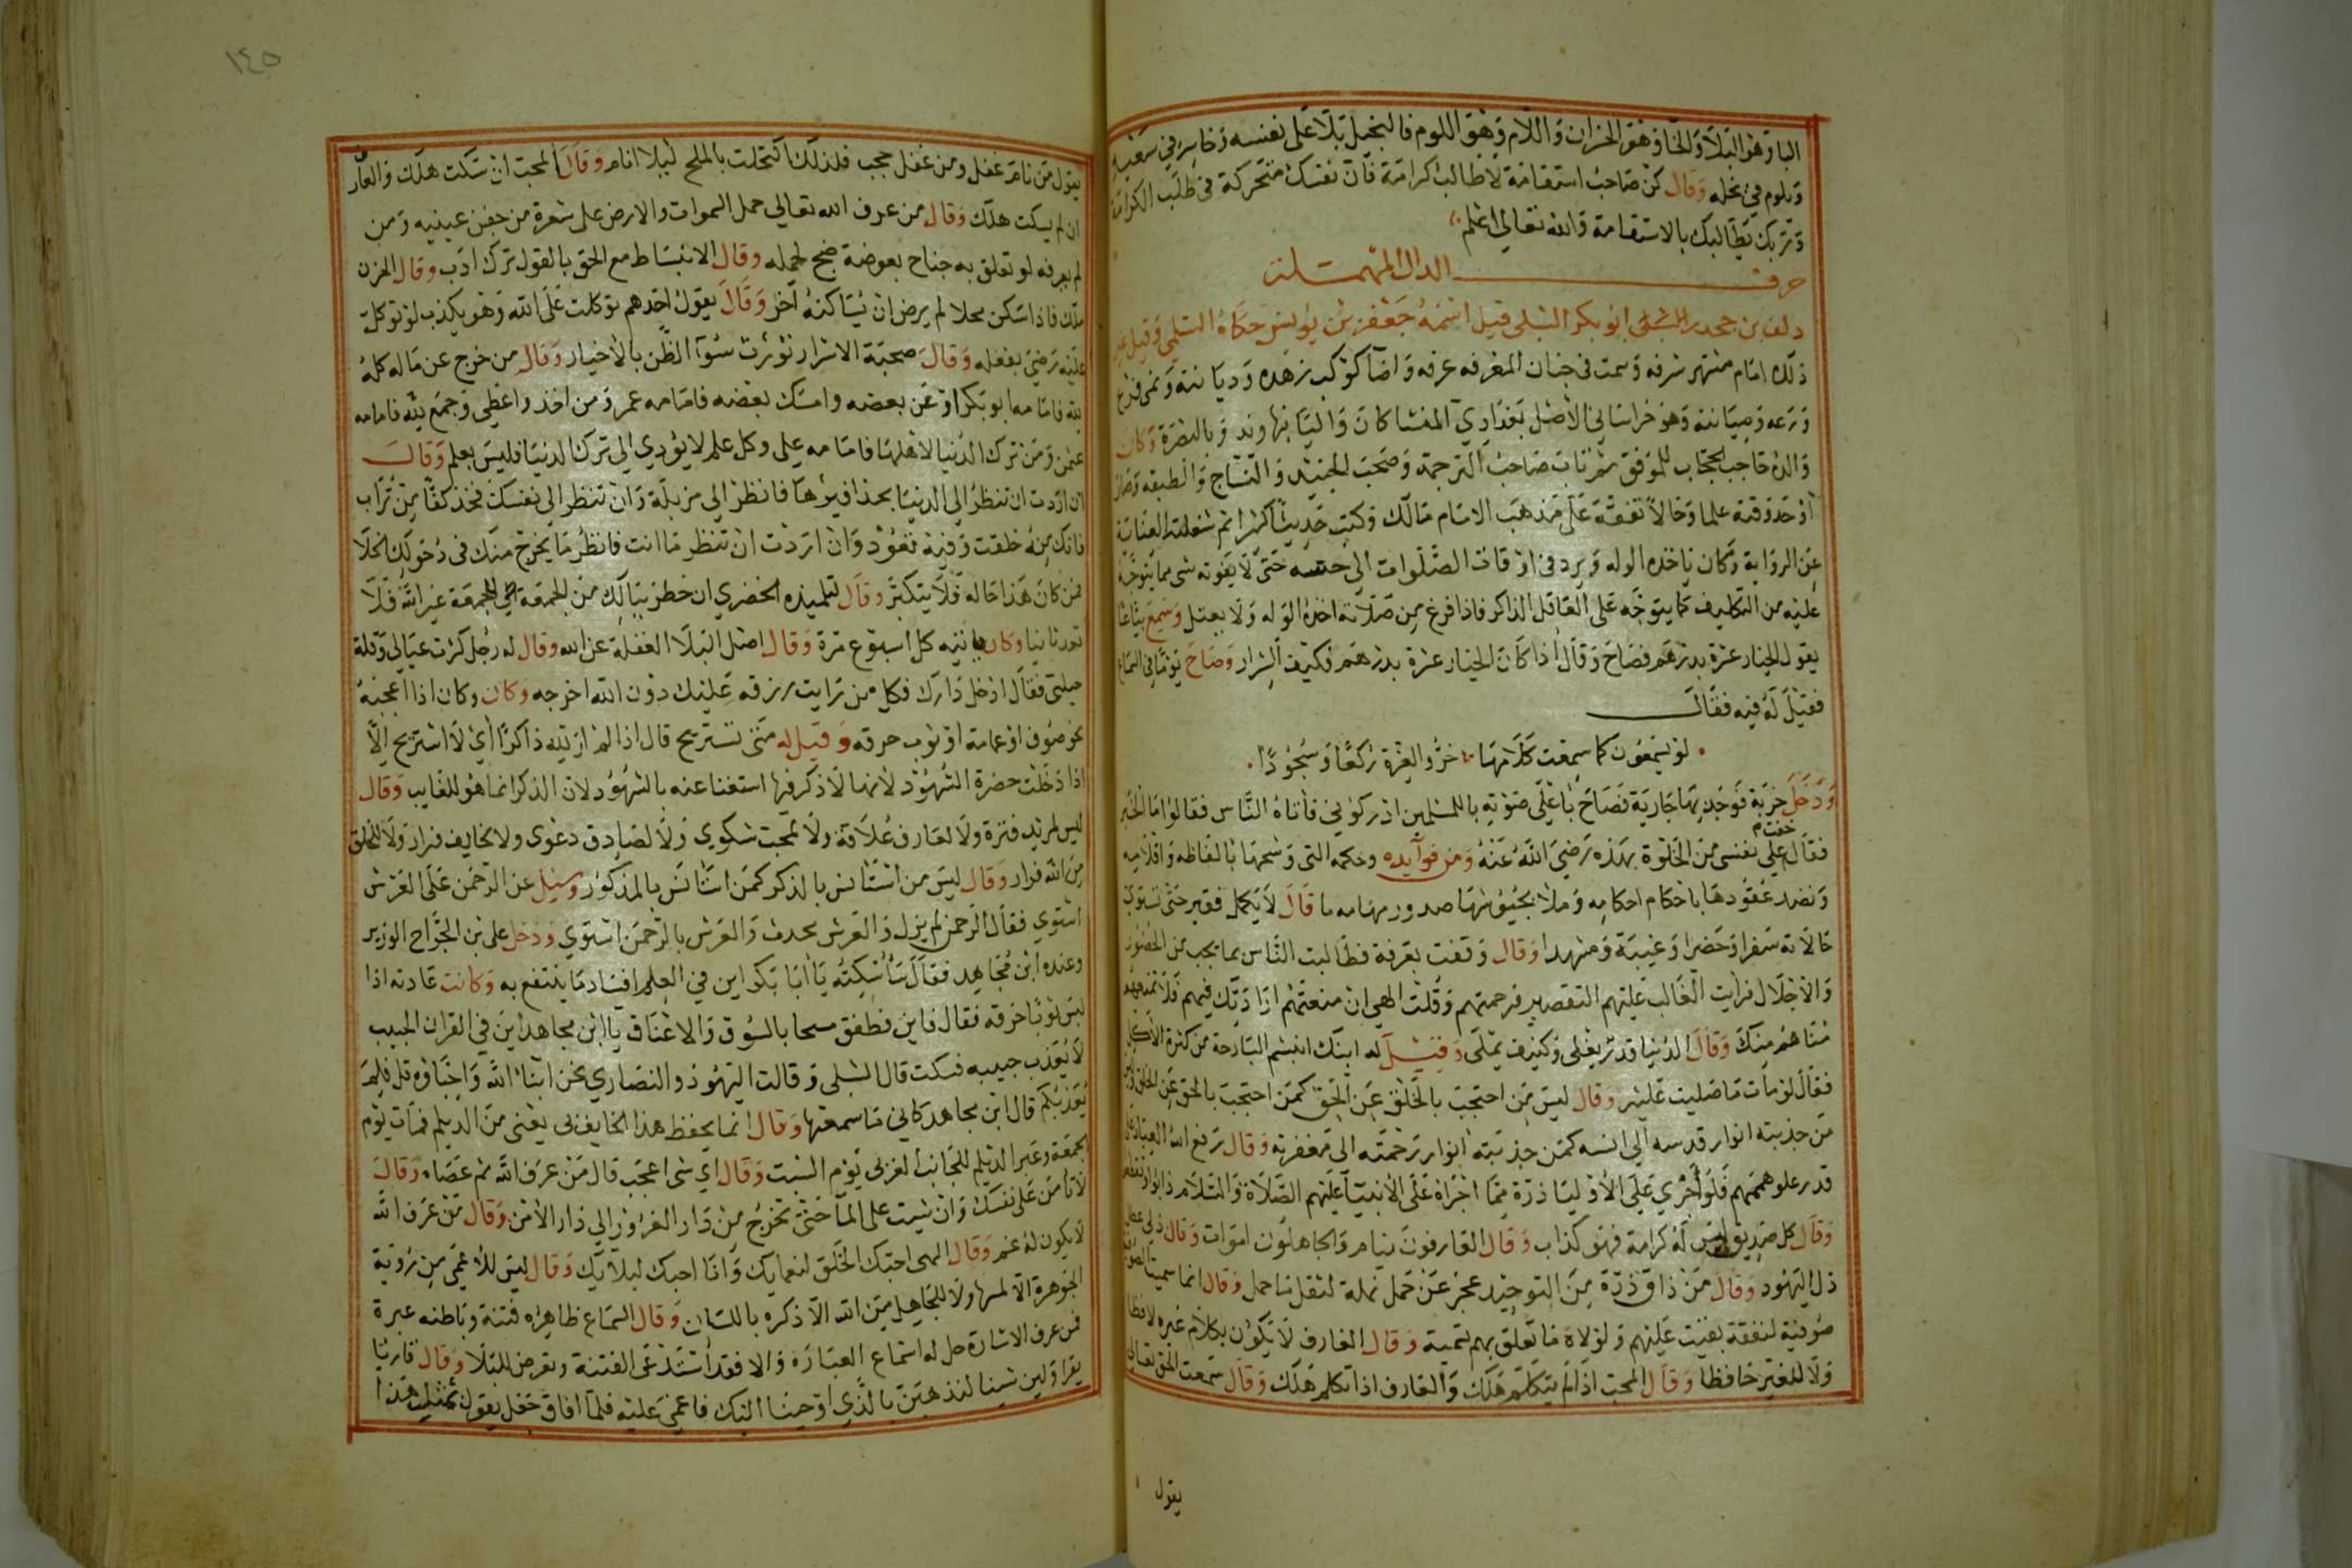 البا وهو البلاء والخا وهو الخزان واللام وهو اللوم فالبخيل بلا على نفسه وخاسر في سعيه
ويلوم في بخله وقال كن صاحب استقامة لا طالب كرامة فان نفسك متحركة في طلب الكرامة
وربك يطالبك بالاستقامة والله تعالى اعلم
حرف الدال المهملة
دلف بن جحدر الشبلي ابو بكر الشبلي قيل اسمه جعفر بن يونس حكاه السلمي وقيل غير
ذلك امام منتهر شرفه وسمت في جنان المعرفه غرفه واضا كوكب زهده وديانته ونمى فرع
ورعه وصيانته وهو خراساني الاصل بغدادي المنشا كان واليا بنهاوند وبالبصرة وكان
والده حاجب الحجاب للموفق ثم تاب صاحب الترجمة وصحب الجنيد والنساج والطبقه وصار
اوحد وقته علما وحالا تفقه على مذهب الامام مالك وكتب حديثا كثيرا ثم شغلته العناية
عن الرواية وكان ياخذه الوله ويرد في اوقات الصلوات الى حسه حتى لا يفوته شي مما يتوجه
عليه من التكليف كما يتوجه على العاقل الذاكر فاذا فرغ من صلاته اخذه الوله ولا يعقل وسمع بياعا
يقول الخيار عشرة بدرهم فصاح وقال اذا كان الخيار عشرة بدرهم فكيف الشرار وصاح يوما في السماع
فقيل له فيه فقال
لو يسمعون كما سمعت كلامها خروا لعزة ركعا وسجودا
ودخل خربة فوجد بها جارية فصاح باعلى صوته يا للمسلمين ادركوني فاتاه الناس فقالوا ما الخبر
فقال خفت على نفسي من الخلوة بهذه رضي الله عنه ومن فوآيده وحكمه التي وشحها بالفاظه واقلامه
ونضد عقودها باحكام احكامه وملا بجيوشها صدور مهامه ما قال لا يكمل فقير حتى تستوي
حالاته سفرا وحضرا وغيبة ومشهدا وقال وقفت بعرفة فطالبت الناس بما يجب من الحضور
والاجلال فرايت الغالب عليهم التقصير فرحمتهم وقلت الهي ان منعتهم ارادتك فيهم فلا تمنعهم
مناهم منك وقال الدنيا قدر يغلى وكنيف يملى وقيل له ابنك ابشم البارحة من كثرة الاكل
فقال لو مات ما صليت عليه وقال ليس من احتجب بالخلق عن الحق كمن احتجب بالحق عن الخلق وليس
من جذبته انوار قدسه الى انسه كمن جذبته انوار رحمته الى مغفرته وقال رفع الله العباد على
قدر علو هممهم فلو اجري على الاوليا ذرة مما اجراه على الانبيآ عليهم الصلاة والسلام ذابوا وتقطعوا
وقال كل صديق ليس له كرامة فهو كذاب وقال العارفون نيام والجاهلون اموات وقال ذلي عطل
ذل اليهود وقال من ذاق ذرة من التوحيد عجز عن حمل نملة لثقل ما حمل وقال انما سميت الصوفية
صوفية لنفقة بقيت عليهم ولولاه ما تعلق بهم تسمية وقال العارف لا يكون بكلام غيره لافظا
ولا للغير حافظا وقال المحب اذا لم يتكلم هلك والعارف اذا تكلم هلك وقال سمعت الحق تعالى
يقول
١٤٥
يقول من نام غفل ومن غفل حجب فلذلك اكتحلت بالملح ليلا انام وقال المحب ان سكت هلك والعارف
ان لم يسكت هلك وقال من عرف الله تعالى حمل السموات والارض على شعرة من جفن عينيه ومن
لم يعرفه لو تعلق به جناح بعوضة ضج لحمله وقال الانبساط مع الحق بالقول ترك ادب وقال الحزن
ملك فاذا سكن محلا لم يرض ان يساكنه آخر وقال يقول احدهم توكلت على الله وهو يكذب لو توكل
عليه رضي بفعله وقال صحبة الاشرار تورث سوء الظن بالاخيار وقال من خرج عن ماله كله
لله فامامه ابو بكر او عن بعضه وامسك بعضه فامامه عمر ومن اخذ واعطى وجمع لله فامامه
عثمن ومن ترك الدنيا لاهلها فامامه على وكل علم لا يؤدي الى ترك الدنيا فليس بعلم وقال
ان اردت ان تنظر الى الدنيا بحذافيرها فانظر الى مزبلة وان تنظر الى نفسك فخذ كفا من تراب
فانك منه خلقت وفيه تعود وان اردت ان تنظر ما انت فانظر ما يخرج منك في دخولك الخلا
فمن كان هذا حاله فلا يتكبر وقال لتلميذه الحضري ان خطر ببالك من الجمعة الى الجمعة غير الله فلا
تعد ثانيا وكان ياتيه كل اسبوع مرة وقال اصل البلا الغفلة عن الله وقال له رجل كثرت عيالي وقلة
حيلتي فقال ادخل دارك فكل من رايت رزقه عليك دون الله اخرجه وكان وكان اذا اعجبه
نحو صوف او عمامة او ثوب حرقه وقيل له متى تستريح قال اذا لم ار لله ذاكرا اي لا استريح الا
اذا دخلت حضرة الشهود لانها لا ذكر فيها استغنا عنه بالشهود لان الذكر انما هو للغايب وقال
ليس لمريد فترة ولا لعارف علاقة ولا لمحب شكوى ولا لصادق دعوى ولا لخايف قرار ولا للخلق
من الله فرار وقال ليس من استانس بالذكر كمن استانس بالمذكور وسئل عن الرحمن على العرش
استوى فقال الرحمن لم يزل والعرش محدث والعرش بالرحمن استوى ودخل على بن الجراح الوزير
وعنده ابن مجاهد فقال ساسكته يا ابا بكر اين في العلم افساد ما ينتفع به وكانت عادته اذا
لبس ثوبا خرقه فقال فاين فطفق مسحا بالسوق والاعناق يا ابن مجاهد اين في القران الحبيب
لا يعذب حبيبه فسكت قال الشبلي وقالت اليهود والنصاري نحن ابناء الله واحباؤه قل فلم
يعذبكم قال ابن مجاهد كاني ما سمعتها وقال انما يحفظ هذا الجانب بي يعني من الديلم فمات يوم
الجمعة وعبر الديلم للجانب الغربي يوم السبت وقال اي شي اعجب قال من عرف الله ثم عصاه وقال
لا تامن على نفسك وان مشيت على المآ حتى تخرج من دار الغرور الى دار الامن وقال من عرف الله
لا يكون له غم وقال الهي احبك الخلق لنعمايك وانا احبك لبلايك وقال ليس للاعمى من رؤية
الجوهرة الا لمسها ولا للجاهل من الله الا ذكره باللسان وقال السماع ظاهره فتنة وباطنه عبرة
فمن عرف الاشارة حل له استماع العبارة والا فقد استدعى الفتنة وتعرض للبلا وقال قاريا
يقرا ولين شينا لنذهبن بالذي اوحينا اليك فاغمي عليه فلما افاق جعل يقول بمثل هذا